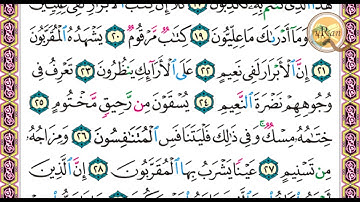 وَمَآ أَدْرَىٰكَ مَا عِلِّيُّونَ ١٩ كِتَٰبٌ مَّرْقُومٌ ٢٠ يَشْهَدُهُ ٱلْمُقَرَّبُونَ
٢١ إِنَّ ٱلْأَبْرَارَ لَفِى نَعِيمٍ ٢٢ عَلَى ٱلْأَرَآئِكِ يَنظُرُونَ ٢٣ تَعْرِفُ فِى
وُجُوهِهِمْ نَضْرَةَ ٱلنَّعِيمِ ٢٤ يُسْقَوْنَ مِن رَّحِيقٍ مَّخْتُومٍ ٢٥
خِتَٰمُهُۥ مِسْكٌ ۚ وَفِى ذَٰلِكَ فَلْيَتَنَافَسِ ٱلْمُتَنَٰفِسُونَ ٢٦ وَمِزَاجُهُۥ
مِن تَسْنِيمٍ ٢٧ عَيْنًا يَشْرَبُ بِهَا ٱلْمُقَرَّبُونَ ٢٨ إِنَّ ٱلَّذِينَ